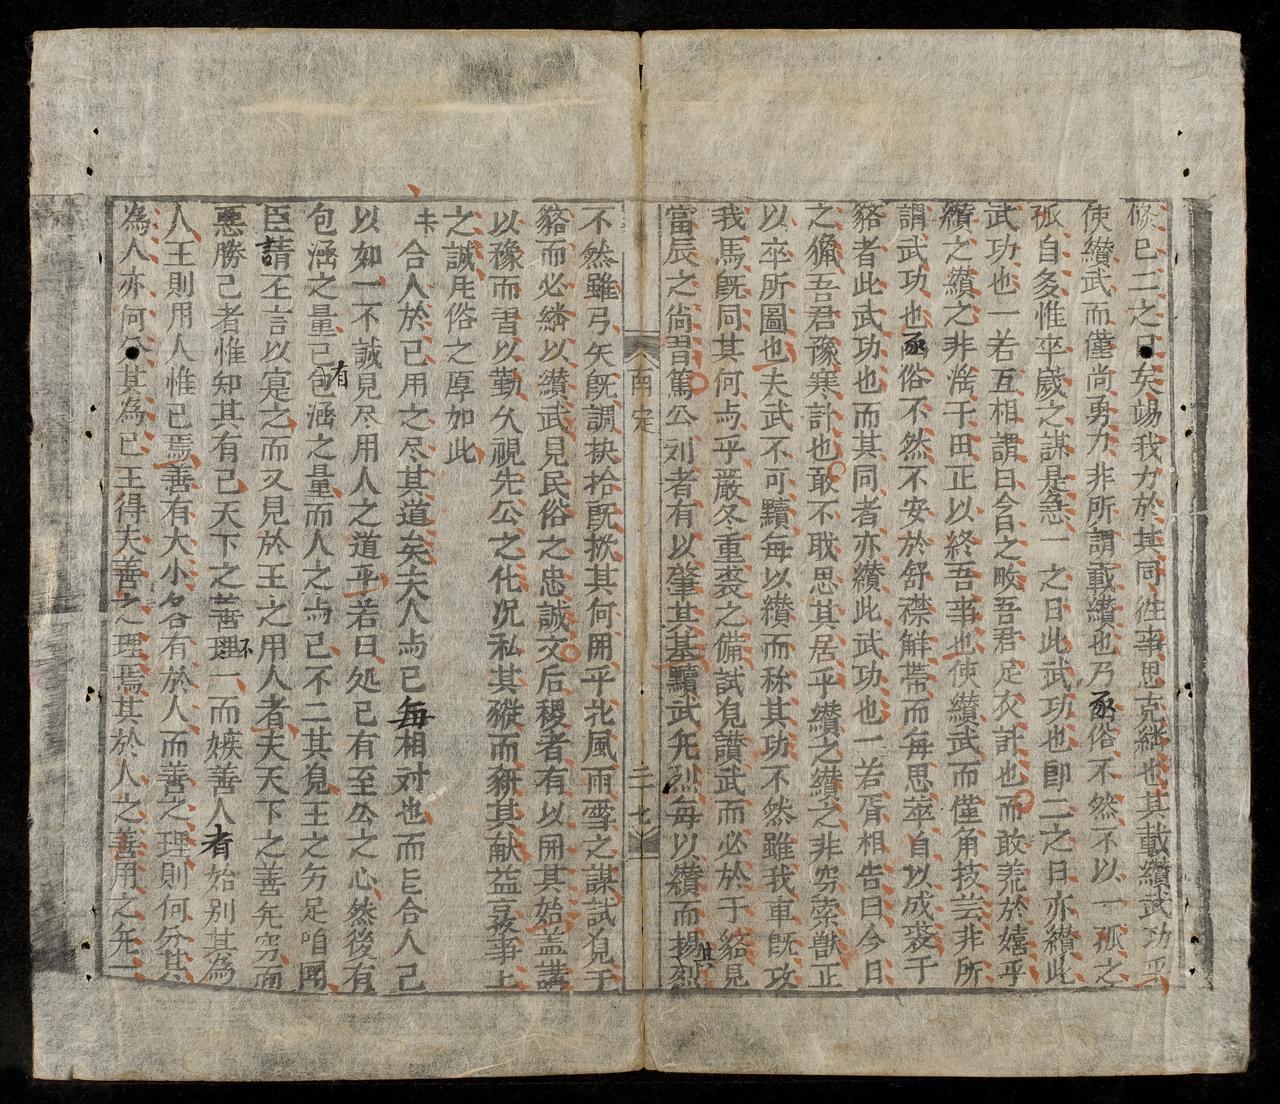 修已二之日矣竭我力於其同徃事思克継也其載纘武功乎
使纘武而僅尚勇力非所謂載纘也乃豕俗不然不以一孤之
孤自多惟卒歲之謀是急一之日此武功也即二之日亦纘此
武功也一若互相謂曰今日之畋吾君足衣計也而敢荒於嬉乎
纘之纘之非滛于田正以終吾事也使纘武而僅角技芸非所
謂武功也豕俗不然不安於舒襟解帶而每思卒自以成裘于
貉者此武功也而其同者亦纘此武功也一若胥相告曰今日
之獵吾君豫寒計也敢不戢思其居乎纘之纘之非穷禽獸正
以卒所圖也夫武不可黷每以纘而称其功不然雖我車旣攻
我馬旣同其何与乎嚴冬重裘之備試覌讃武而必於于貉見
當辰之尚昔篤公刘者有以肇其基黷武旡烈每以纘而揚其烈
不然雖弓矢旣調抉拾旣掀其何開乎北風雨雪之謀試覌于
貉而必継以纘武見民俗之忠誠文后稷者有以開其始盖講
以豫而習以勤乆視先公之化况私其豵而豣其献益寔事上
之誠庀俗之厚如此
合人於己用之尽其道矣夫人与己每相对也而巨合人己
以如一不誠見尽用人之道乎若曰処己有至公之心然後有
包涵之量己有包涵之量而人之与己不二其覌王之夯足咱國
臣請丕言以寔之而又見於王之用人者夫天下之善旡穷而
惡勝己者惟知其有己天下之善理不一而嫉善人者始别其為
人王則用人惟已焉善有大小各有於人而善之理則何分其
為人亦何分其為已王得天善之理焉其於人之善用之旡一